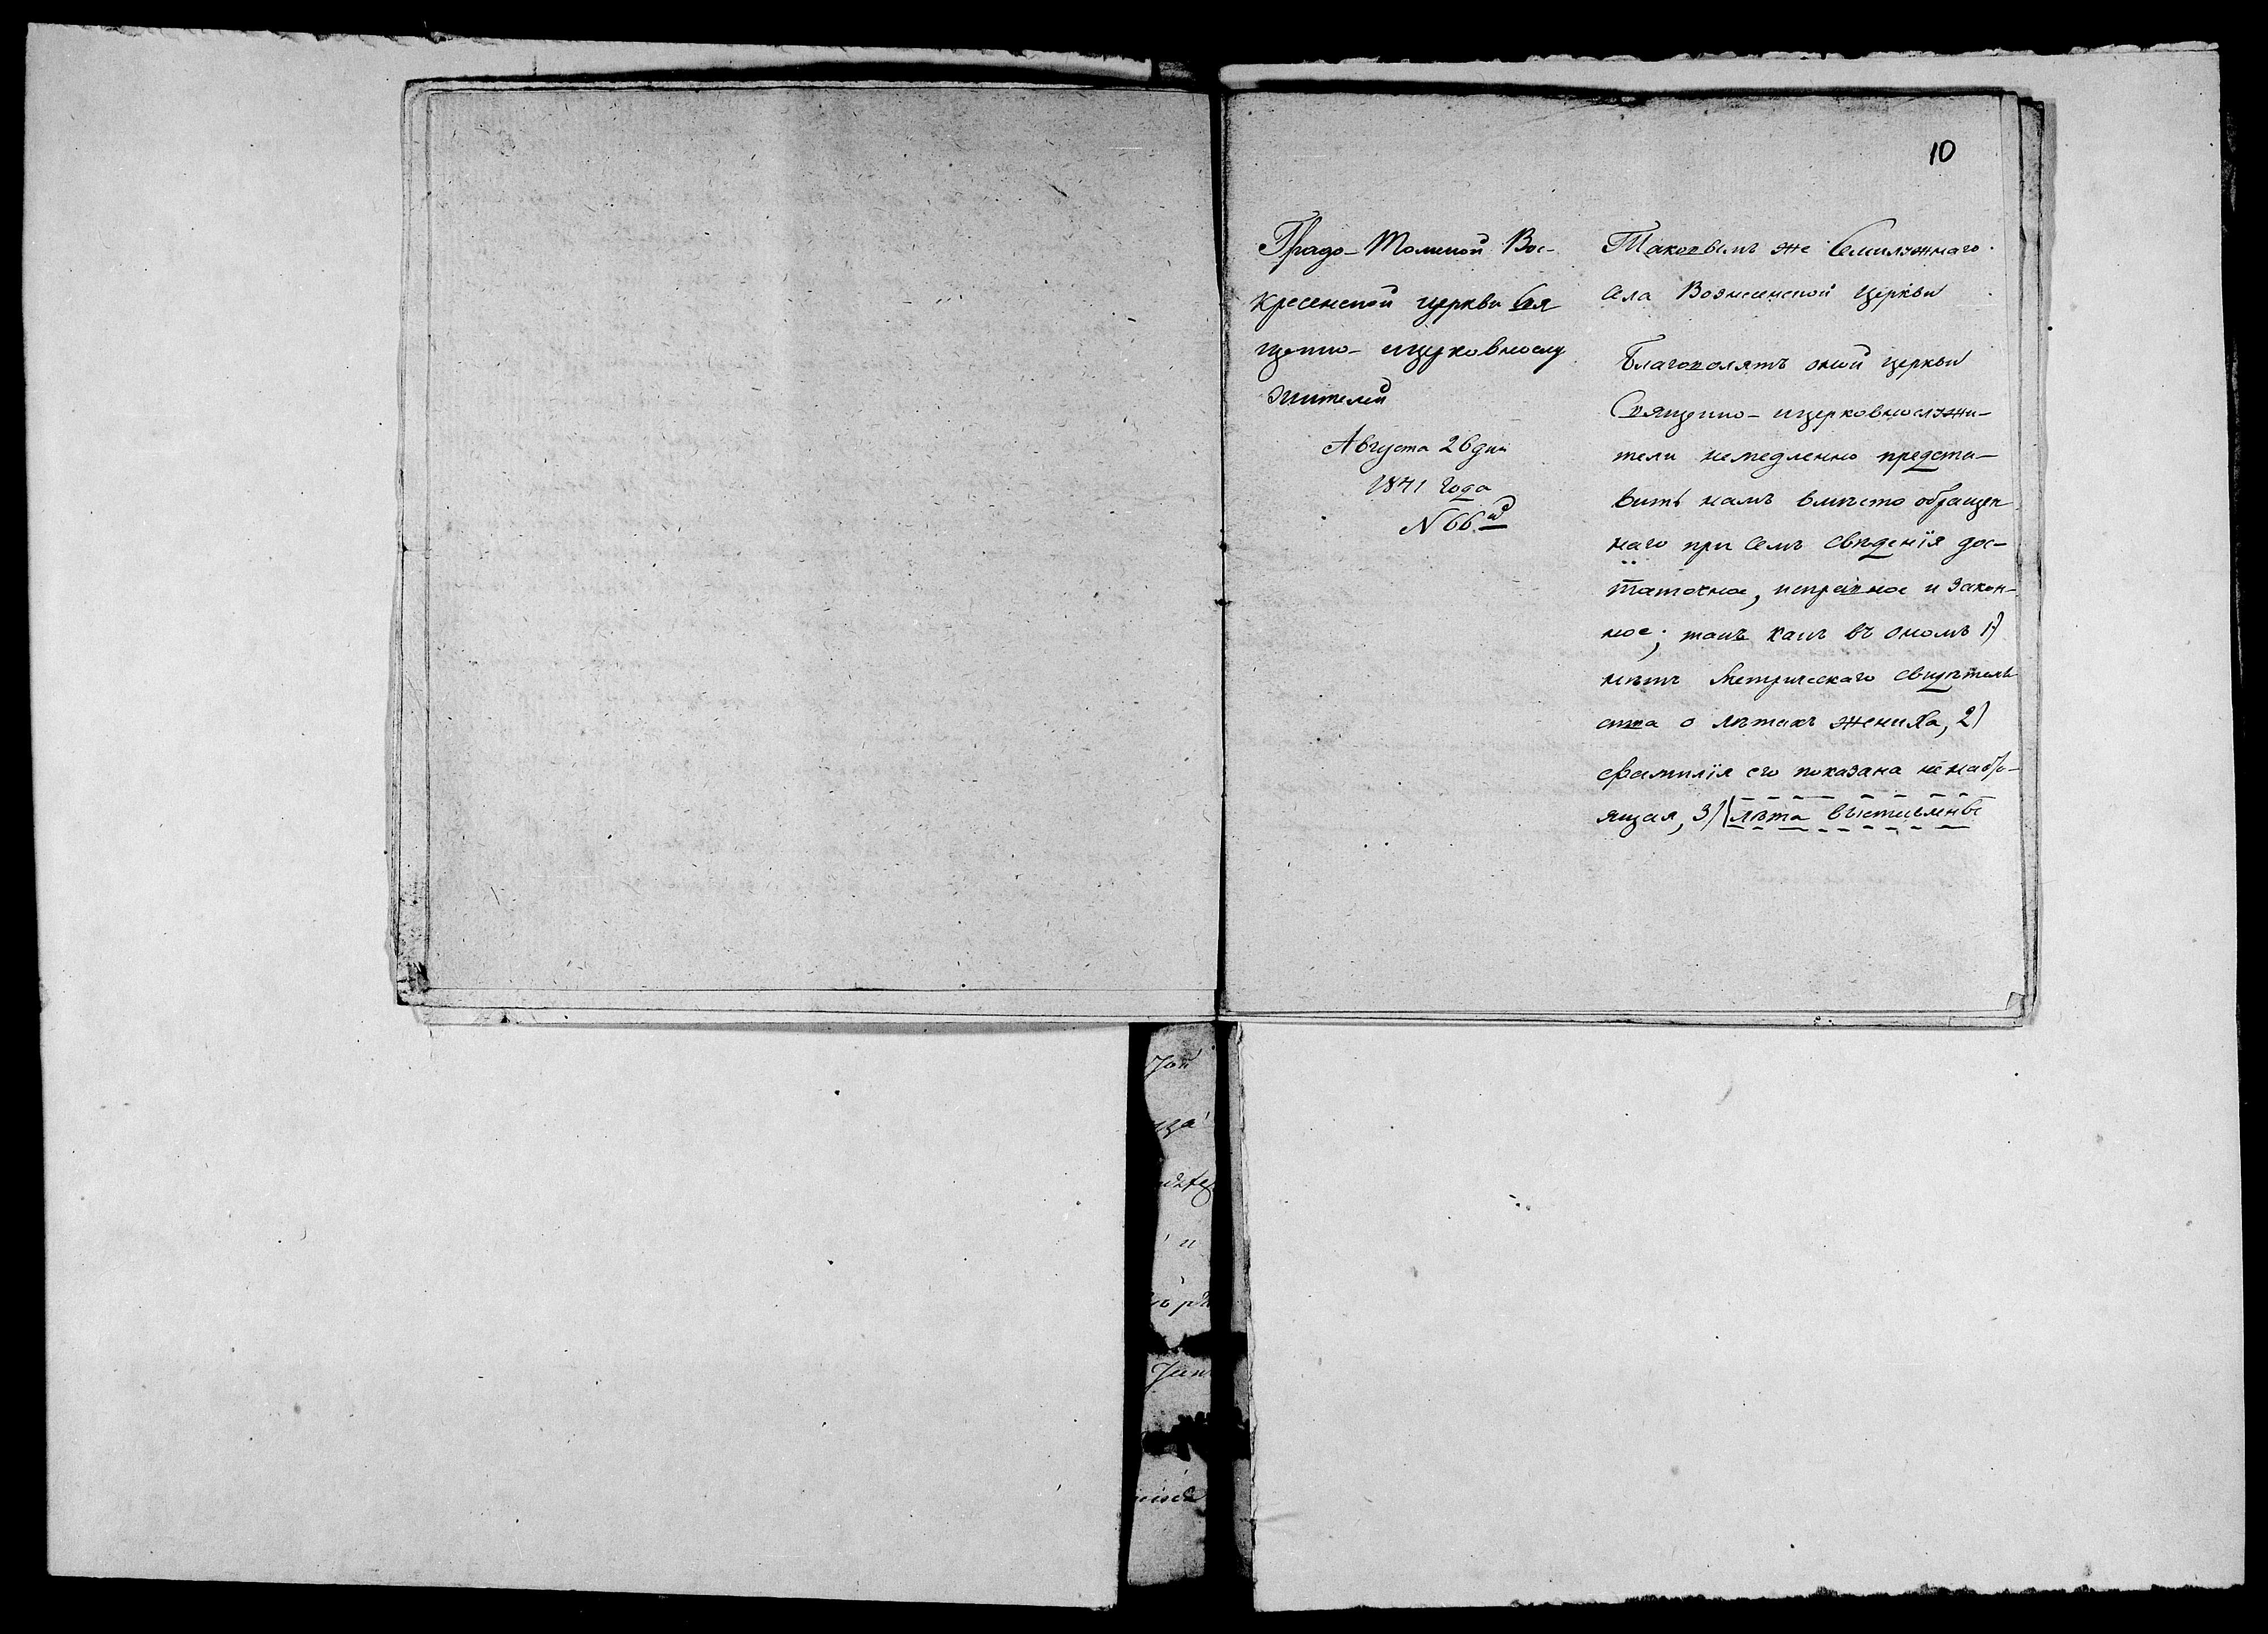 10
Градо-Томской Вос-
кресенской церкви Свя
щенно-ицерковнослу
жителей
Августа 26 дня
1841 года
N 66.й
Таковымъ же Семилужнаго
села Вознесенской Церкви
Благоволятъ оной церкви
Священно-ицерковнослужи-
тели немедленно предста-
вить намъ вмѣсто обращен
наго при семъ свѣденія дос-
таточное, исправное и закон-
ное; такъ какъ въ ономъ 1)
нѣтъ Метрическаго свидѣтель
ства о лѣтахъ жениха, 2)
фамилія его показана ненасто-
ящая, 3) лѣта выставлены